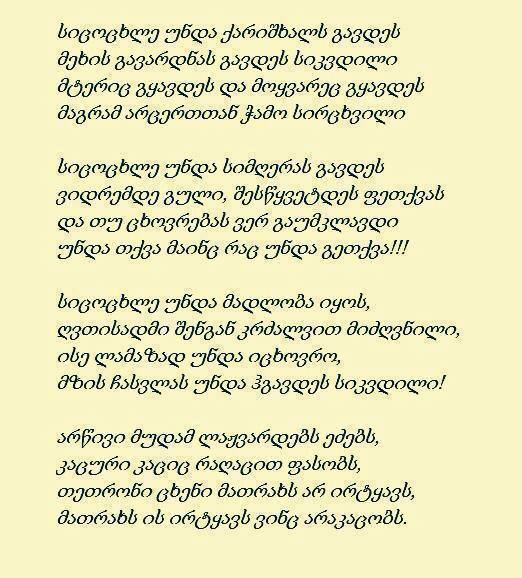 სიცოცხლე უნდა ქარიშხალს გავდეს
მეხის გავარდნას გავდეს სიკვდილი
მტერიც გყავდეს და მოყვარეც გყავდეს
მაგრამ არცერთთან ჭამო სირცხვილი

სიცოცხლე უნდა სიმღერას გავდეს
ვიდრემდე გული, შესწყვეტდეს ფეთქვას
და თუ ცხოვრებას ვერ გაუმკლავდი
უნდა თქვა მაინც რაც უნდა გეთქვა!!!

სიცოცხლე უნდა მადლობა იყოს,
ღვთისადმი შენგან კრძალვით მიძღვნილი,
ისე ლამაზად უნდა იცხოვრო,
მზის ჩასვლას უნდა ჰგავდეს სიკვდილი!

არწივი მუდამ ლაჟვარდებს ეძებს,
კაცური კაციც რაღაცით ფასობს,
თეთრონი ცხენი მათრახს არ ირტყავს,
მათრახს ის ირტყავს ვინც არაკაცობს.